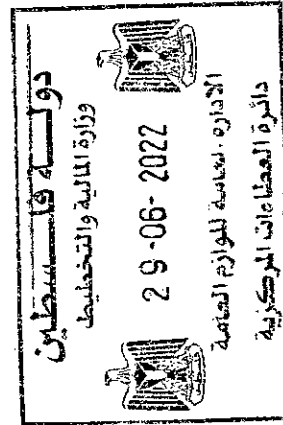 دولة فلسطين
وزارة المالية والتخطيط
29-06-2022
الادارة العامة للوازم العامة
دائرة العطاءات المركزية